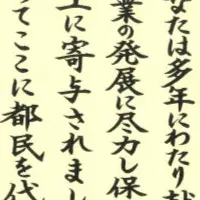 なたは多年にわたり
業の発展に尽力し保
上に寄与されまし
てここに都民を代